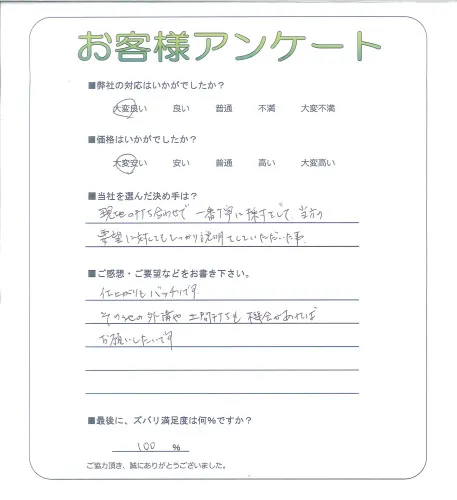 お客様アンケート
■弊社の対応はいかがでしたか?
大変良い 良い 普通 不満 大変不満
■価格はいかがでしたか?
大変安い 安い 普通 高い 大変高い
■当社を選んだ決め手は?
現地打ち合わせで一番丁寧に採寸をして、当方の
要望に対してもしっかり説明をしていただいた事.
■ご感想・ご要望などをお書き下さい。
仕上がりもバッチリです.
その他の外構や土間打ちも機会があれば
お願いしたいです
■最後に、ズバリ満足度は何%ですか?
100 %
ご協力頂き、誠にありがとうございました。